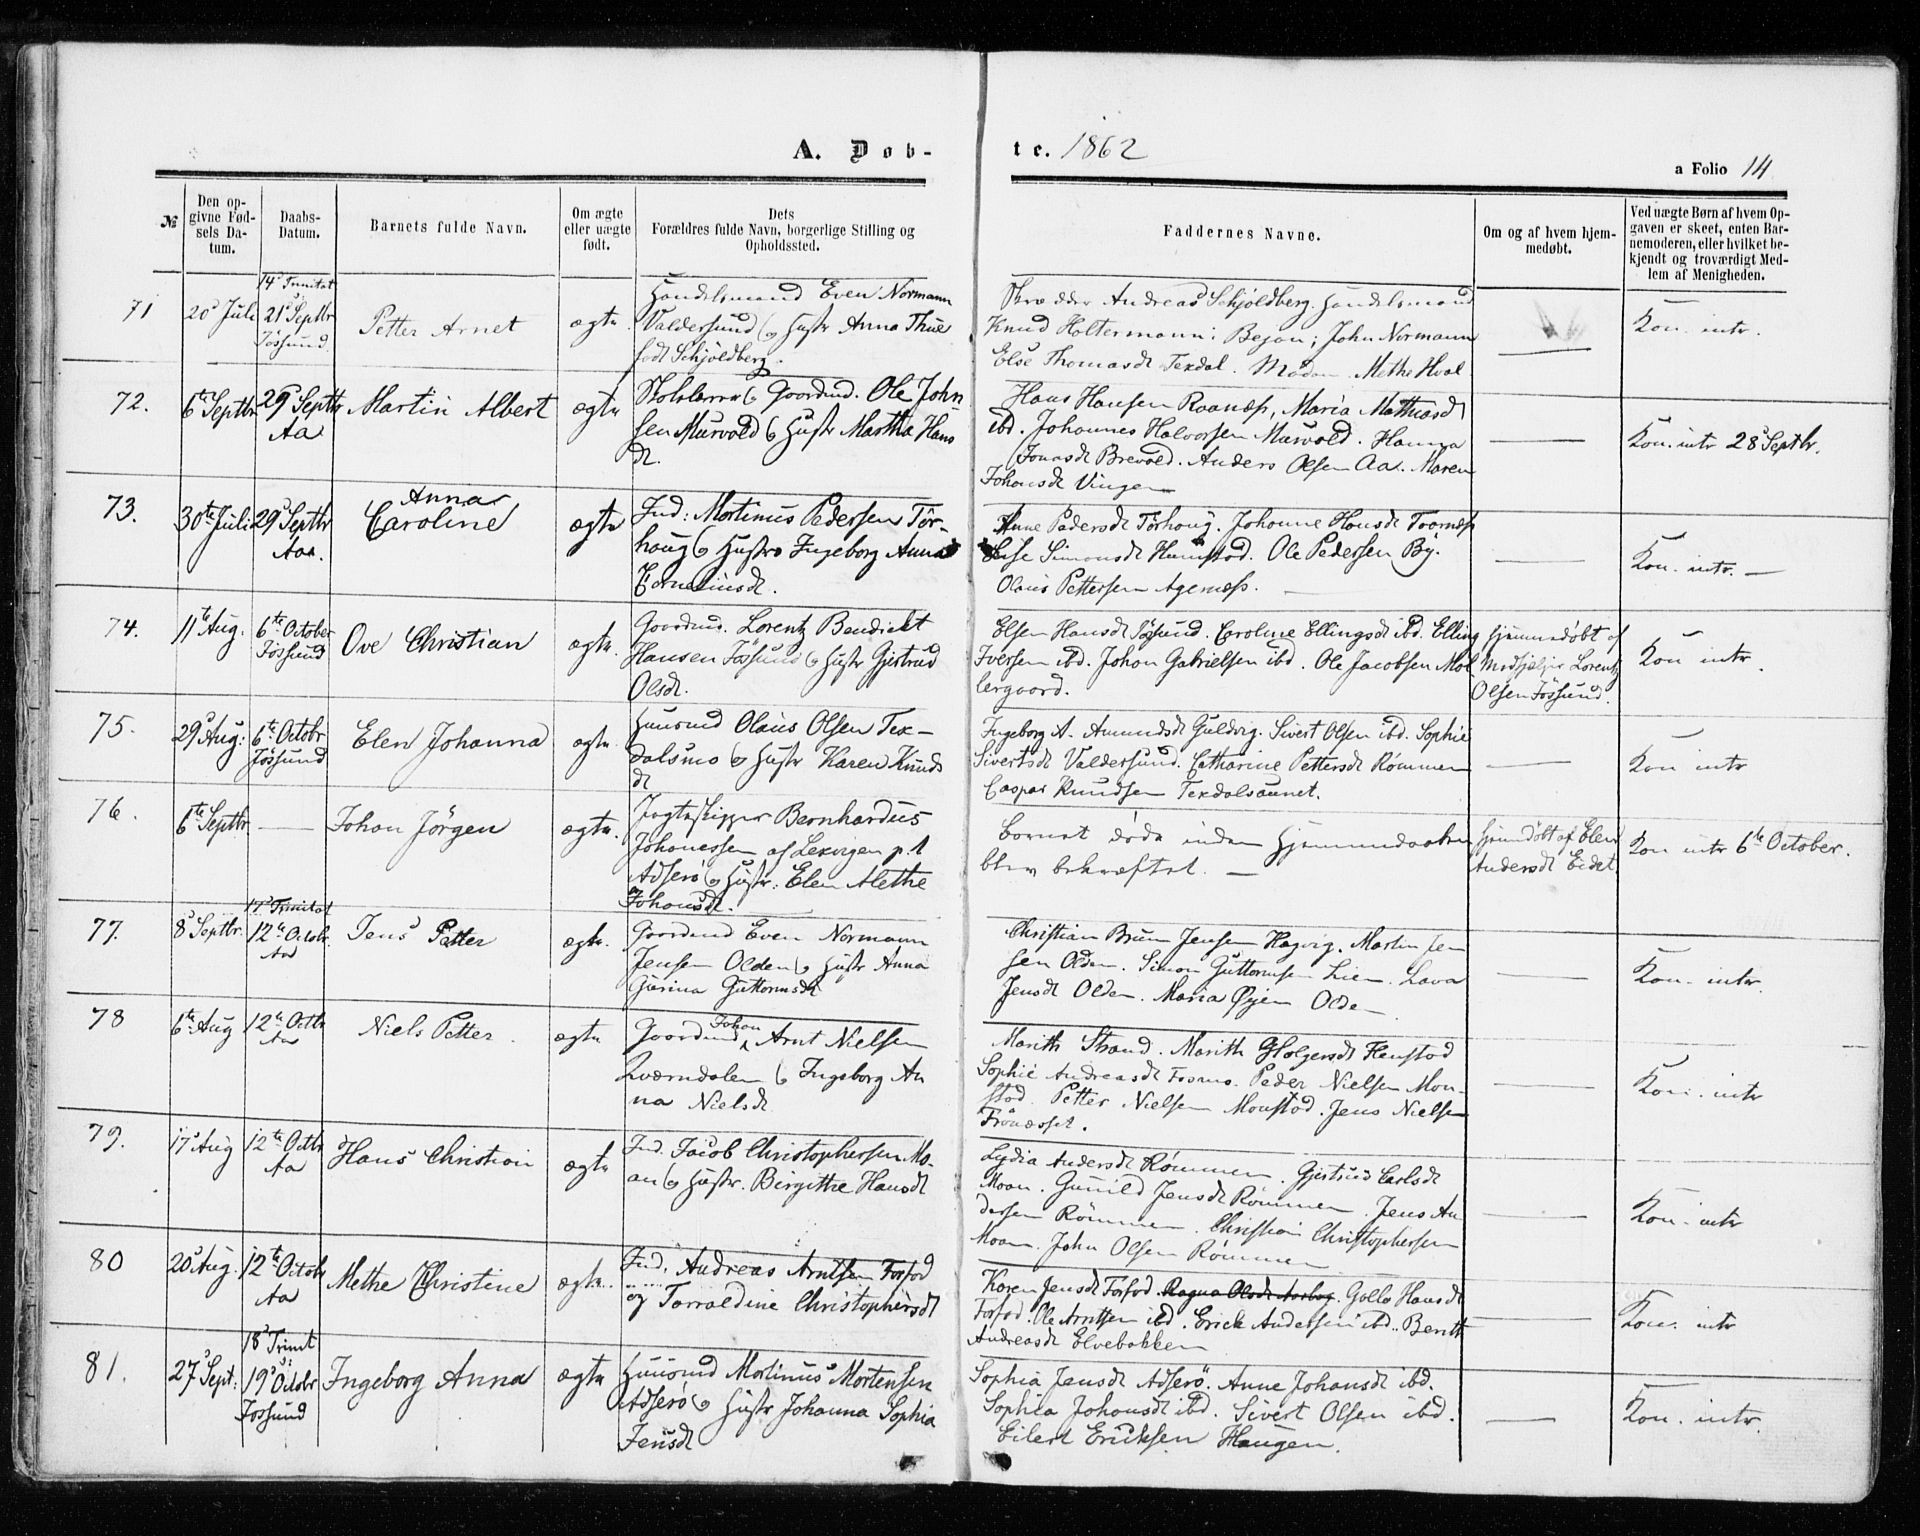 A. Døb-
te. 1862
a Folio 14
№
Den opgivne Fødsels Datum.
Daabs-Datum.
Barnets fulde Navn.
Om ægte eller uægte født.
Dets Forældres fulde Navn, borgerlige Stilling og Opholdssted.
Faddernes Navne.
Om og af hvem hjemmedøbt.
Ved uægte Børn af hvem Opgaven er skeet, enten Barnemoderen, eller hvilket bekjendt og troværdigt Medlem af Menigheden.
71
20s Juli
14s Trinitat
21s Septbr
Jössund
Petter Arnet
ægte
Handelsmand Even Normann
Valdersund og Hustr Anna Thue
født Schjöldberg.
Andreas Schjöldberg. Handelsmand
Knud Holtermann: Bejan; John Normann
Else Thomasdt Texdal. Madam Methe Hval
Kon. intr.
72.
6te Septbr
29s Septbr
Aa
Martin Albert
ægte
Skolelærer og Gaardmd. Ole John
sen Murvold og Hustr Martha Hans
dt.
Hans Hansen Raanæs, Maria Mathiasdt
ibd. Johannes Halvorsen Murvold. Hanna
Jonasdt Brevold. Anders Olsen Aa. Maren
Johansdt Vingen
Kon. intr 28s Septbr.
73.
30te Juli
29s Septbr
Aaa.
Anna
Caroline
ægte
Ind: Mortinus Pedersen Tör-
houg og Hustro Ingeborg Anna
Corneliusdt.
Anne Pedersdt Törhoug. Johanne Hansdt
Else Simonsdt Humstad. Ole Pedersen By.
Olaus Pettersen Agernæs.
Kon. intr. —
74.
11te Aug.
6te October
Jössund
Ove Christian
ægte.
Gaardmd. Lorentz Bendickt
Hansen Jössund og Hustr Gjertrud
Olsdt.
Elsen Hansdt Jössund. Caroline Ellingsdt ibd. Elling
Iversen ibd. Johan Gabrielsen ibd. Ole Jacobsen Møl
lergaard.
Hjemmedøbt af
Medhjælper Lorentz
Olsen Jössund.
Kon intr.
75.
29s Aug:
6te Octobr
Jössund
Elen Johanna
ægte.
Huusmd Olaus Olsen Tex-
dalsmo og Hustr Karen Knuds
dt
Ingeborg A. Amundsdt Guldvig. Sivert Olsen ibd. Sophie
Sivertsdt Valdersund. Catharine Pettersdt Rømmen
Caspar Knudsen Texdalsaunet.
Kon intr
76.
6te Septbr
Johan Jörgen
ægte.
Jagteskipper Bernhardus
Johanessen af Lexvigen p.t
Adserö og Hustr: Elen Alethe
Johansdt.
Barnet døde inden Hjemmedaaben
blev bekræftet. —
Hjemdöbt af Elen
Andersdt Eidet.
Kon intr 6te October.
77.
8s Septbr.
17s Trinitat
12te Octobr.
Aa
Jens Petter
ægte.
Gaardmd Even Normann
Jensen Olden og Hustr Anna
Gurina Guttormsdt
Christian Brun Jensen Hagvig. Martin Jen
sen Olden. Simon Guttormsen Lien. Lava
Jensdt Olden. Maria Øyen Olden
Kon. intr.
78
6te Aug
12te Octbr
Aa
Niels Petter.
ægte
Gaardmd Johan Arnt Nielsen
Qværndalen og Ingeborg An
na Nielsdt
Marith Strand. Marith Holgersdt Henstad
Sophie Andreasdt Fosmo. Peder Nielsen Mon-
stad. Petter Nielsen Monstad. Jens Nielsen
Frönæsset.
Kon. intr
79.
17s Aug
12te Octbr
Aa
Hans Christian
ægte
Ind. Jacob Christophersen Mo-
an og Hustr. Birgithe Hansdt
Lydia Andersdt Rømmen. Gjertrud Carlsdt
Moan. Gunild Jensdt Rømmen. Jens An
dersen Rømmen. Christian Christophersen
Moan. John Olsen Rømmen
Kon. intr
80
20s Aug.
12te Octobr
Aa
Methe Christine
ægte.
Ind. Andreas Arntsen Forfod
og Torraldine Christophersdt
Karen Jensdt Forfod. Ragna Olsdt Gollo Hansdt
Forfod. Ole Arntsen ibd. Erick Andersen ibd. Berith
Andreasdt Elvebakken
Kon. intr
81.
27s Sept:
18s Trinit
19s Octobr
Jössund
Ingeborg Anna
ægte
Huusmd Mortinus Mortensen
Adserö og Hustr Johanna Sophia
Jensdt
Sophia Jensdt Adserö. Anne Johansdt ibd.
Sophia Johansdt ibd. Sivert Olsen ibd.
Eilert Ericksen Haugen.
Kon. intr.